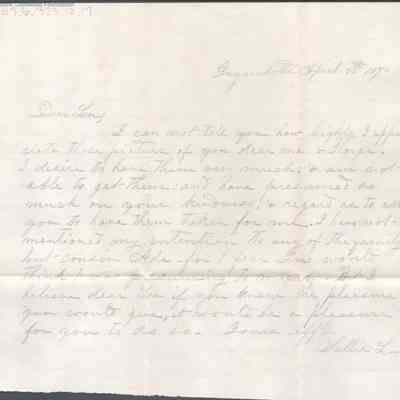 Guyandotte April 9th 187
Dear
I can not tell you how highly I appre
ciate the picture of you dear one &
I desire to have them very much; & am not
able to get them: and have presumed as
much on your kindness, & regard as to ask
you to have them taken for me. I have not
mentioned my intention to any of the family
but cousin Ada for I fear would
think
believe dear if you knew the pleasure
you would give, it would be a pleasure
for you to do so. Yours
Sallie